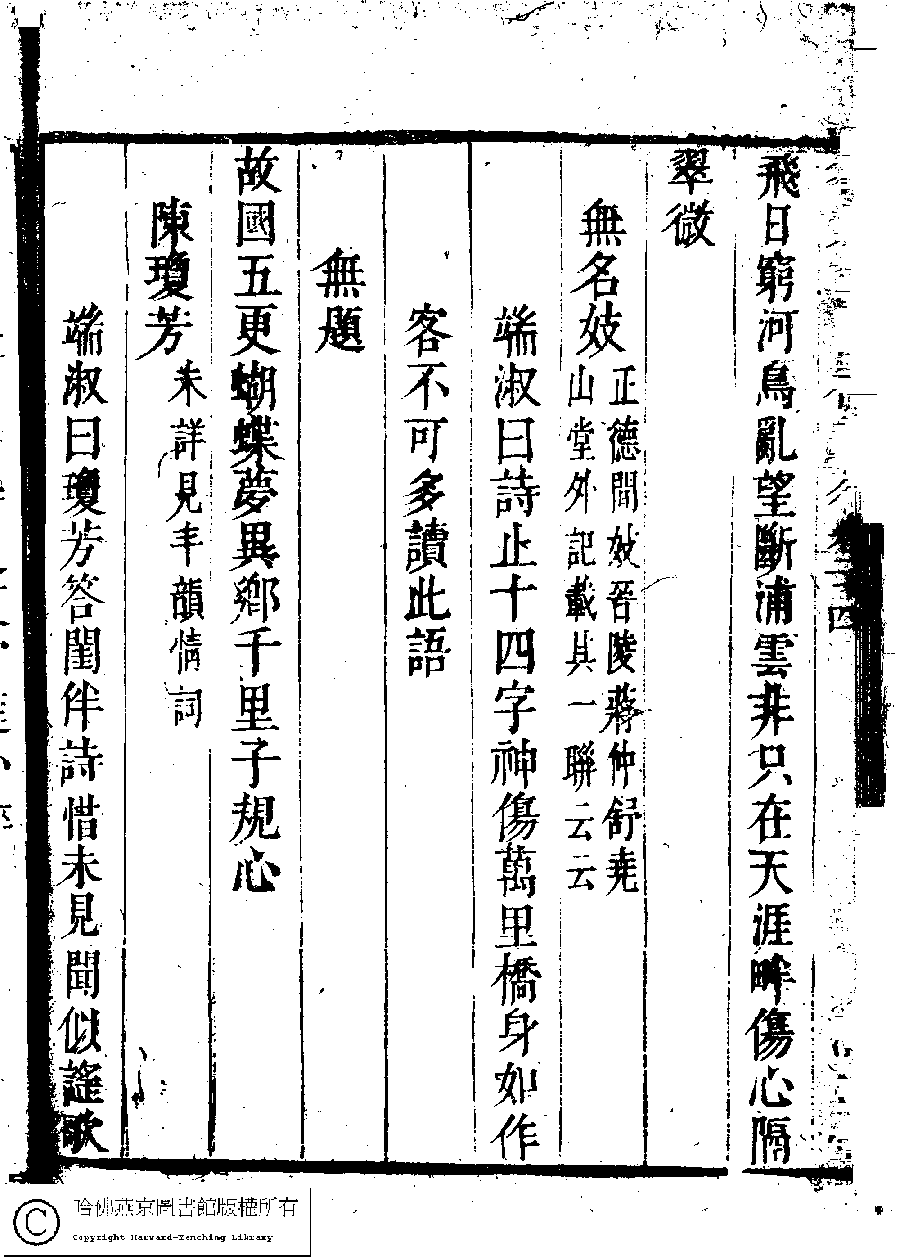 飛日窮河鳥亂望斷浦雲非只在天涯畔傷心隔
翠微
無名妓
正德間妓晉陵蔣仲舒堯
山堂外記載其一聯云云
端淑曰詩止十四字神傷萬里橋身如作
客不可多讀此語
無題
故國五更蝴蝶夢異鄉千里子規心
陳瓊芳
未詳見丰韻情詞
端淑曰瓊芳答閨伴詩惜未見聞似謠歌
哈佛燕京圖書館版權所有
Copyright Harvard-Yenching Library